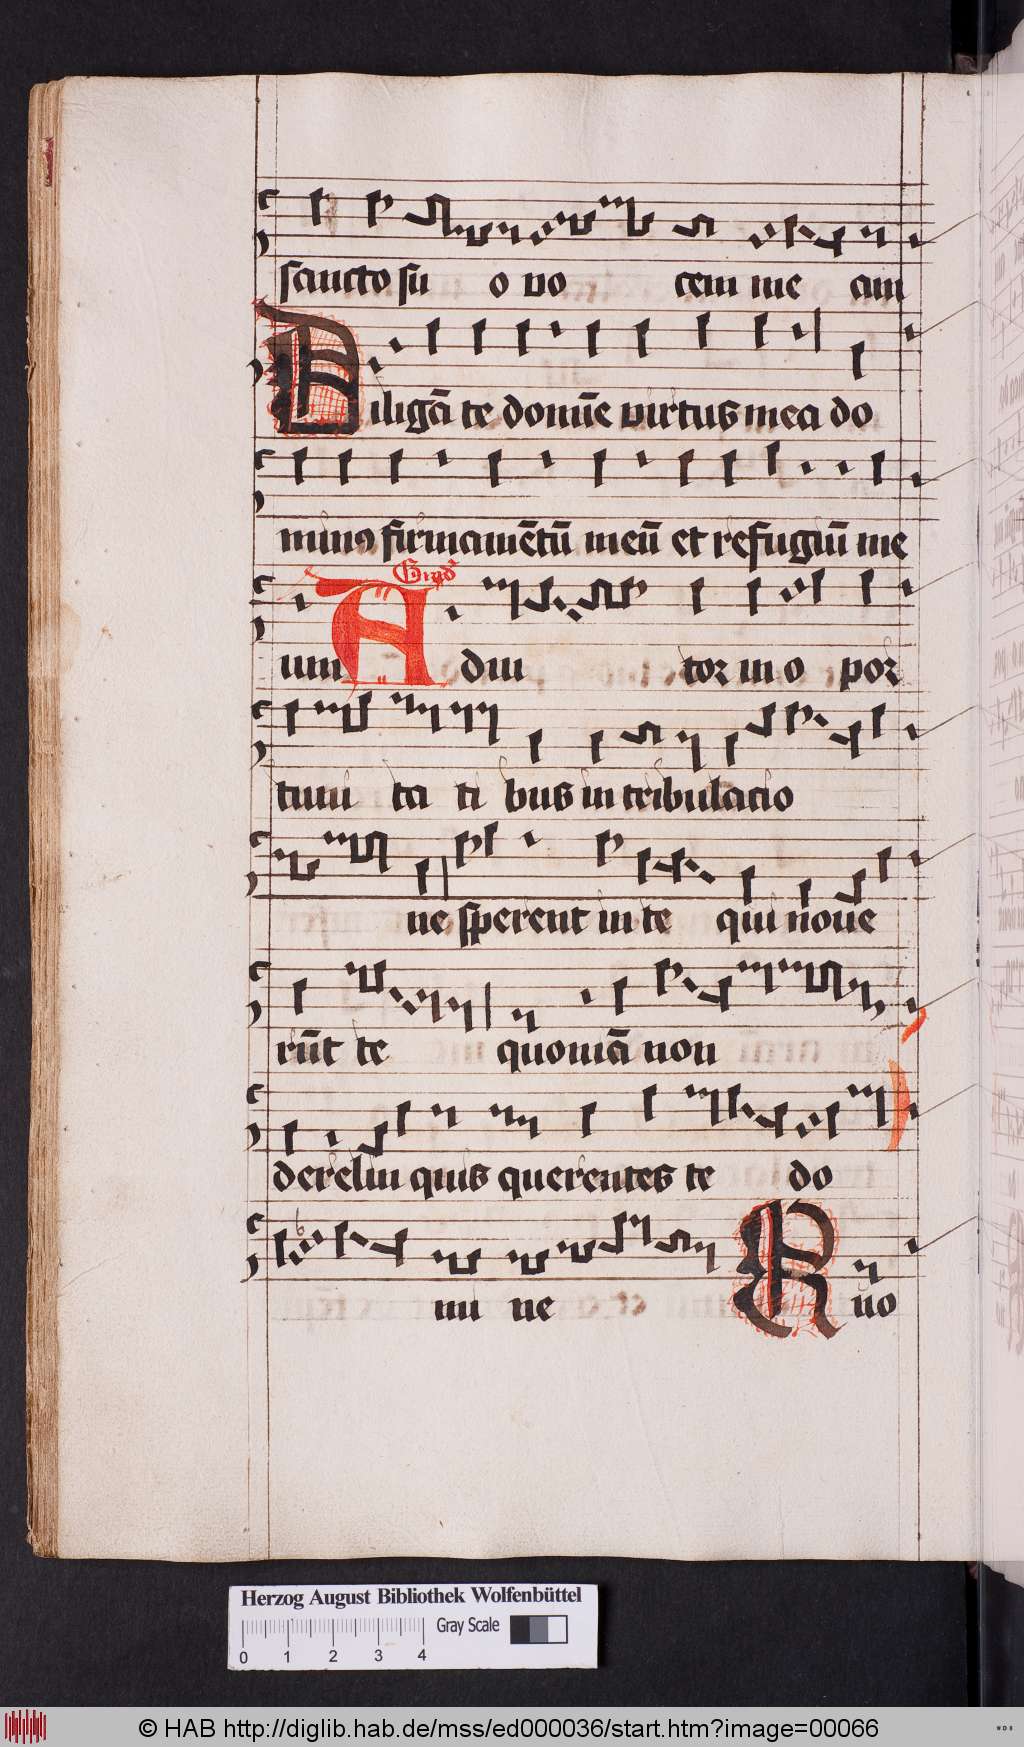 sancto su o vo cem me am
Diligā te domīe virtus mea do
minus firmamētū meū et refugiū me
um Grad Adiu tor in o por
tuni ta ti bus in tribulacio
ne sperent in te qui noue
rūt te quoniā non
derelin quis querentes te do
mi ne Quo
Herzog August Bibliothek Wolfenbüttel
Gray Scale
0 1 2 3 4
© HAB http://diglib.hab.de/mss/ed000036/start.htm?image=00066